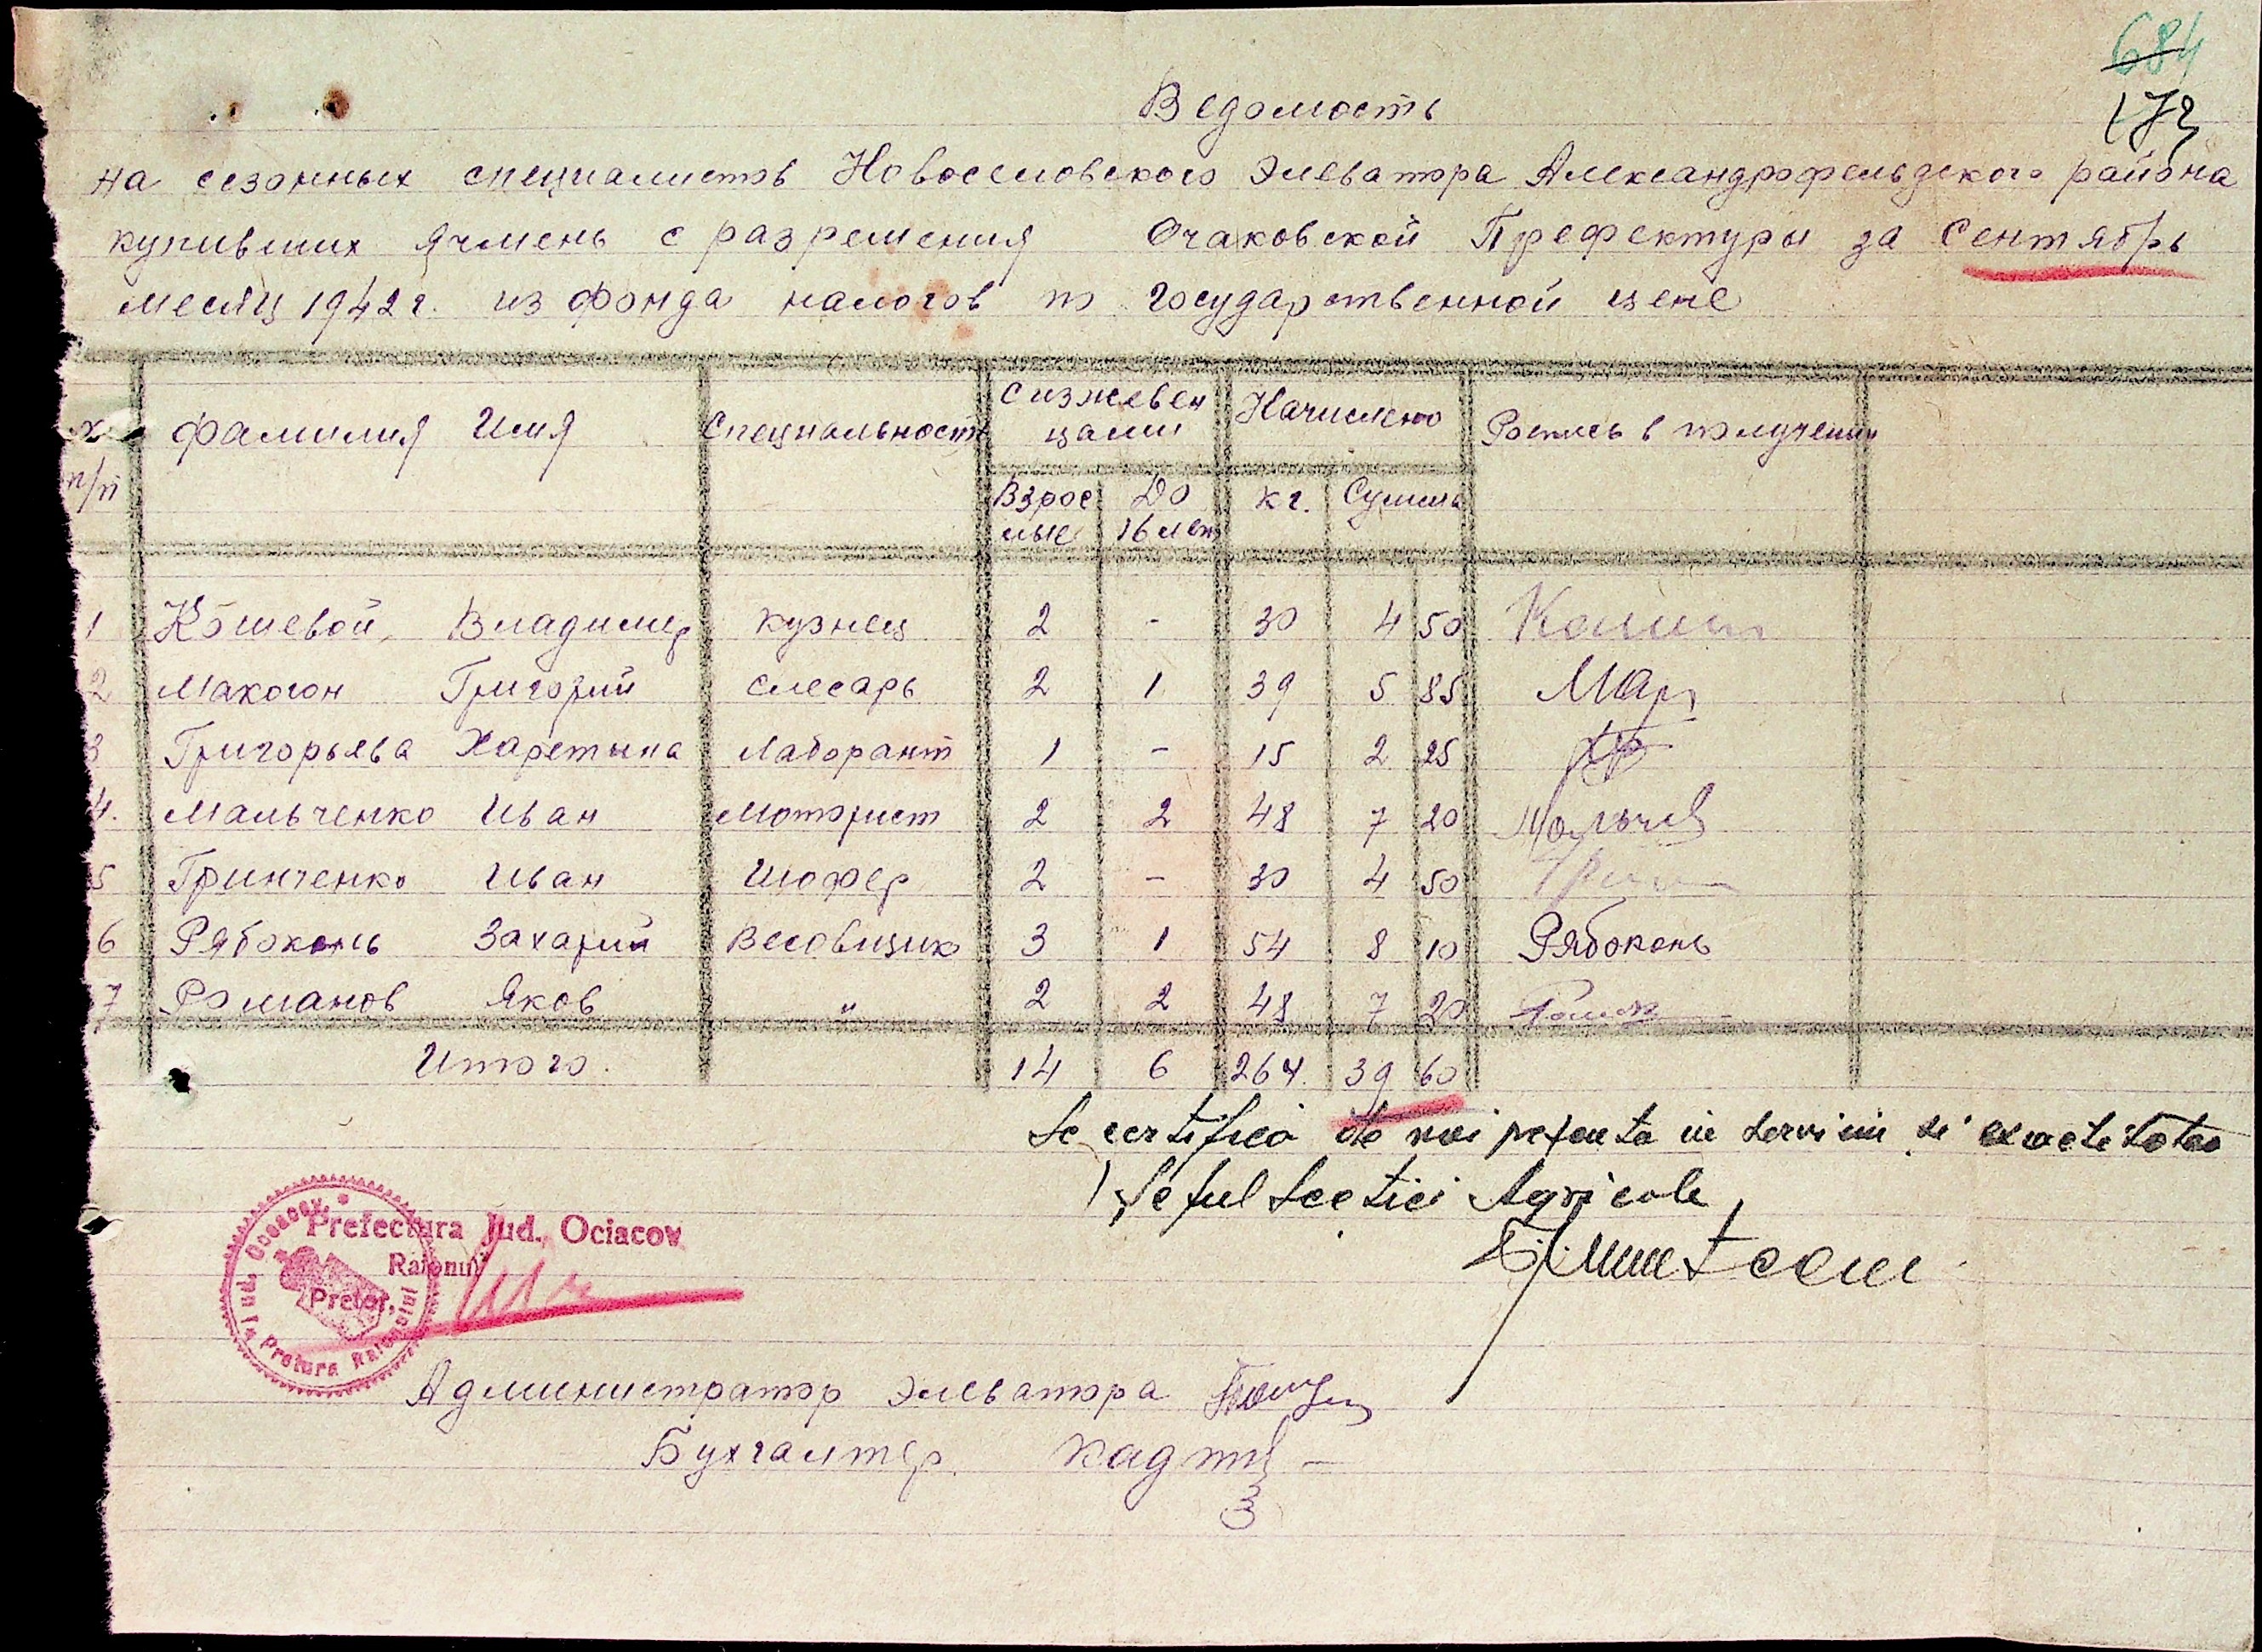 684
172
Ведомость
на сезонных специалистов Новоселовского Элеватора Александрофельдского района
купивших ячмень с разрешения Очаковской Префектуры за Сентябрь
месяц 1942 г. из фонда налогов по государственной цене
п/п Фамилия Имя Специальность С изжевен Начислено Роспись в получении
цами
Взрос До кг. Сумма
лые 16 лет
1 Кошевой Владимир кузнец 2 - 30 4 50
2 Макогон Григорий слесарь 2 1 39 5 85
3 Григорьева Харетына Лаборант 1 - 15 2 25
4. Мальченко Иван Моторист 2 2 48 7 20
5 Гринченко Иван Шофер 2 - 30 4 50
6 Рябоконь Захарий Весовщик 3 1 54 8 10 Рябоконь
7 Романов Яков " 2 2 48 7 20
Итого. 14 6 264. 39 60
Se certifică de noi in serviciu si exactitatea
Șeful Sectiei Agricole
Prefectura Jud. Ociacov
Raionul
Pretor,
Jud. Ociacov
Pretura Raionului
Администратор Элеватора
Бухгалтер